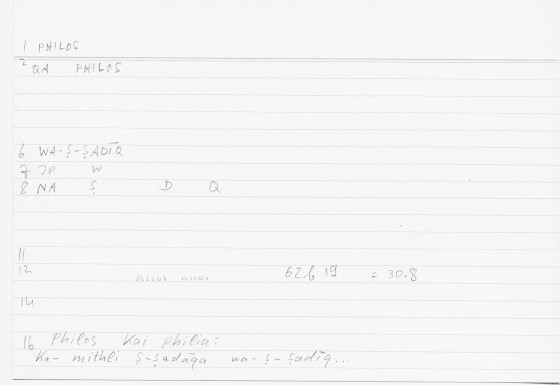 1 PHILOS
2 QA PHILOS
6 WA-Ṣ-ṢADĪQ
7 JP W
8 NA Ṣ D Q
11
12 62b19 = 30.8
14
16 Philos kai philia:
Ka- mithli ṣ-ṣadāqa wa-ṣ-ṣadīq...